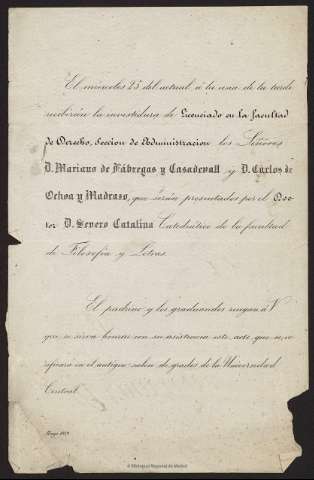 El miércoles 25 del actual á la una de la tarde
recibirán la investidura de Licenciado en la facultad
de Derecho, Seccion de Administracion los Señores
D. Mariano de Fábregas y Casadevall y D. Carlos de
Ochoa y Madrazo, que serán presentados por el Doc-
tor D. Severo Catalina Catedrático de la facultad
de Filosofía y Letras.
El padrino y los graduandos ruegan á V.
que se sirva honrar con su asistencia este acto que se ve-
rificará en el antiguo salon de grados de la Universidad
Central.
Mayo
© Biblioteca Regional de Madrid